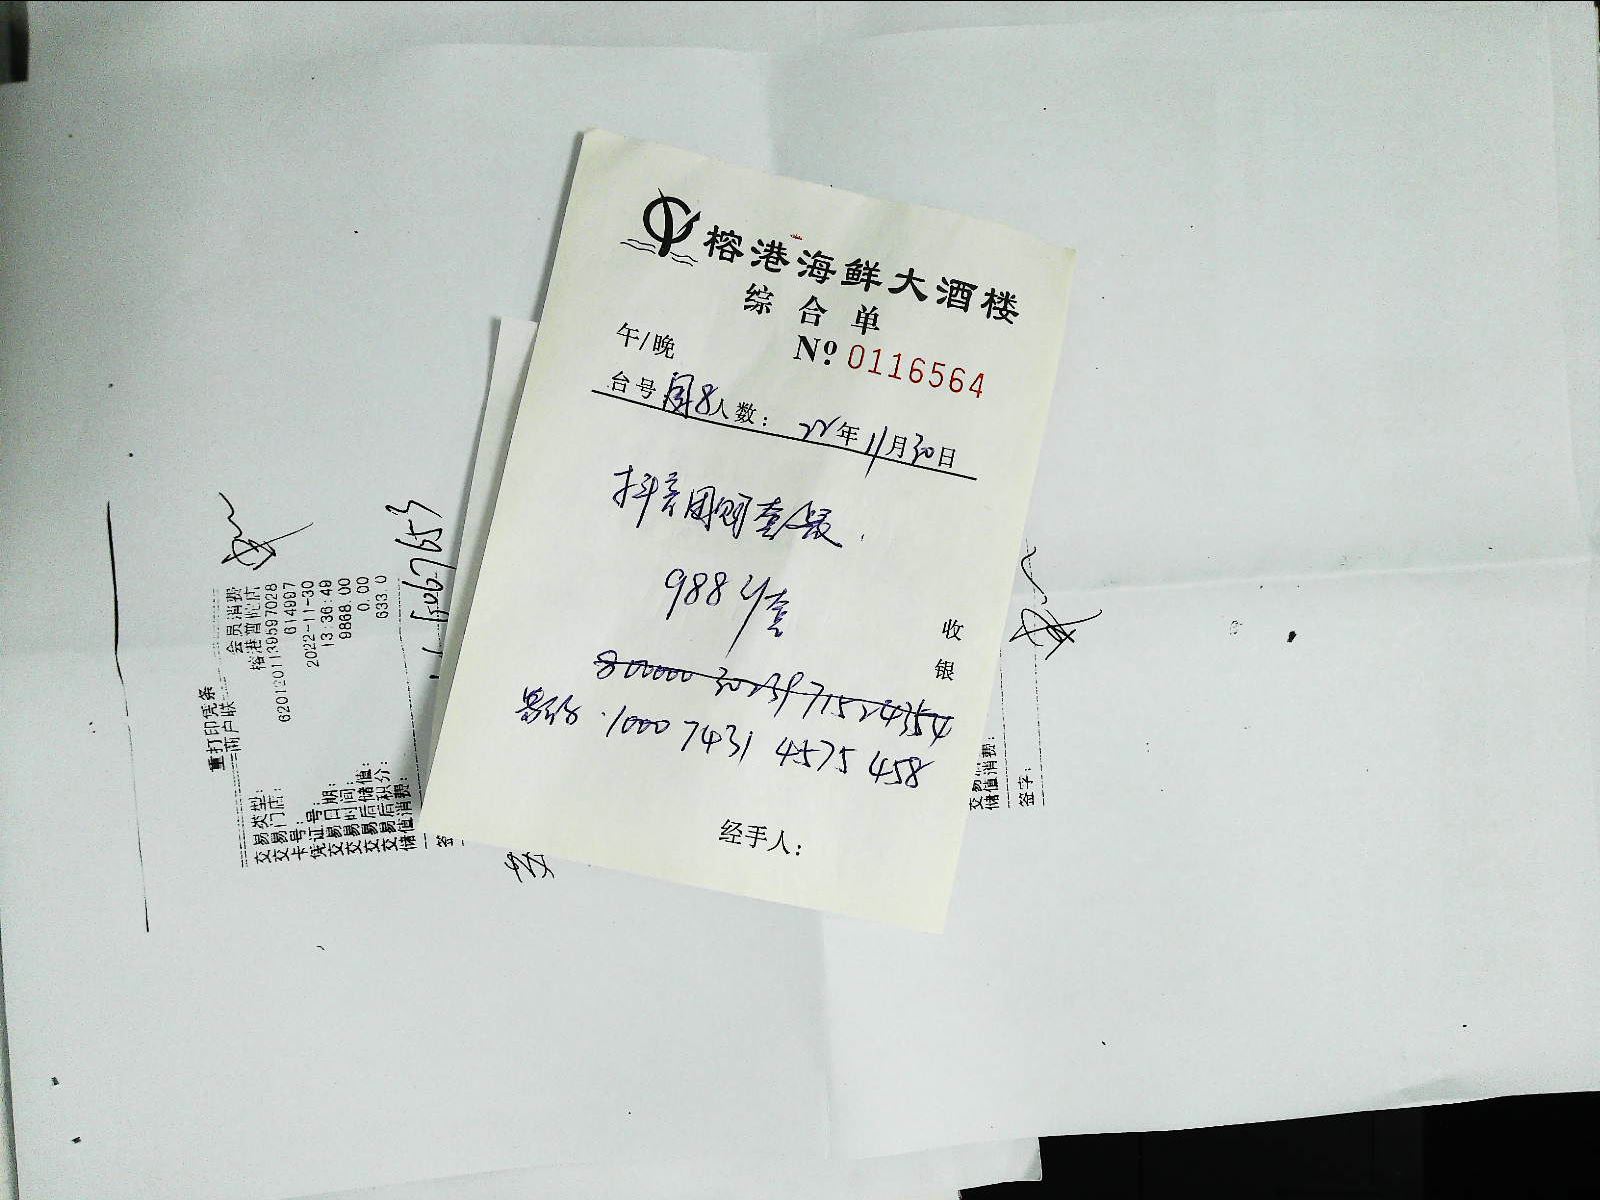 榕港海鲜大酒楼
综合单
午/晚 № 0116564
台号 人数： 22年11月30日
抖音团购套餐.
988 套
收
银
1000 7431 4575 458
经手人：
重打印凭条
商户联
交易类型： 会员消费
交易门店： 榕港普陀店
卡号： 6201201139597028
凭证号： 614997
交易日期： 2022-11-30
交易时间： 13:36:49
交易后储值： 9868.00
交易后积分： 0.00
储值消费： 633.0
储值消费：
签字：